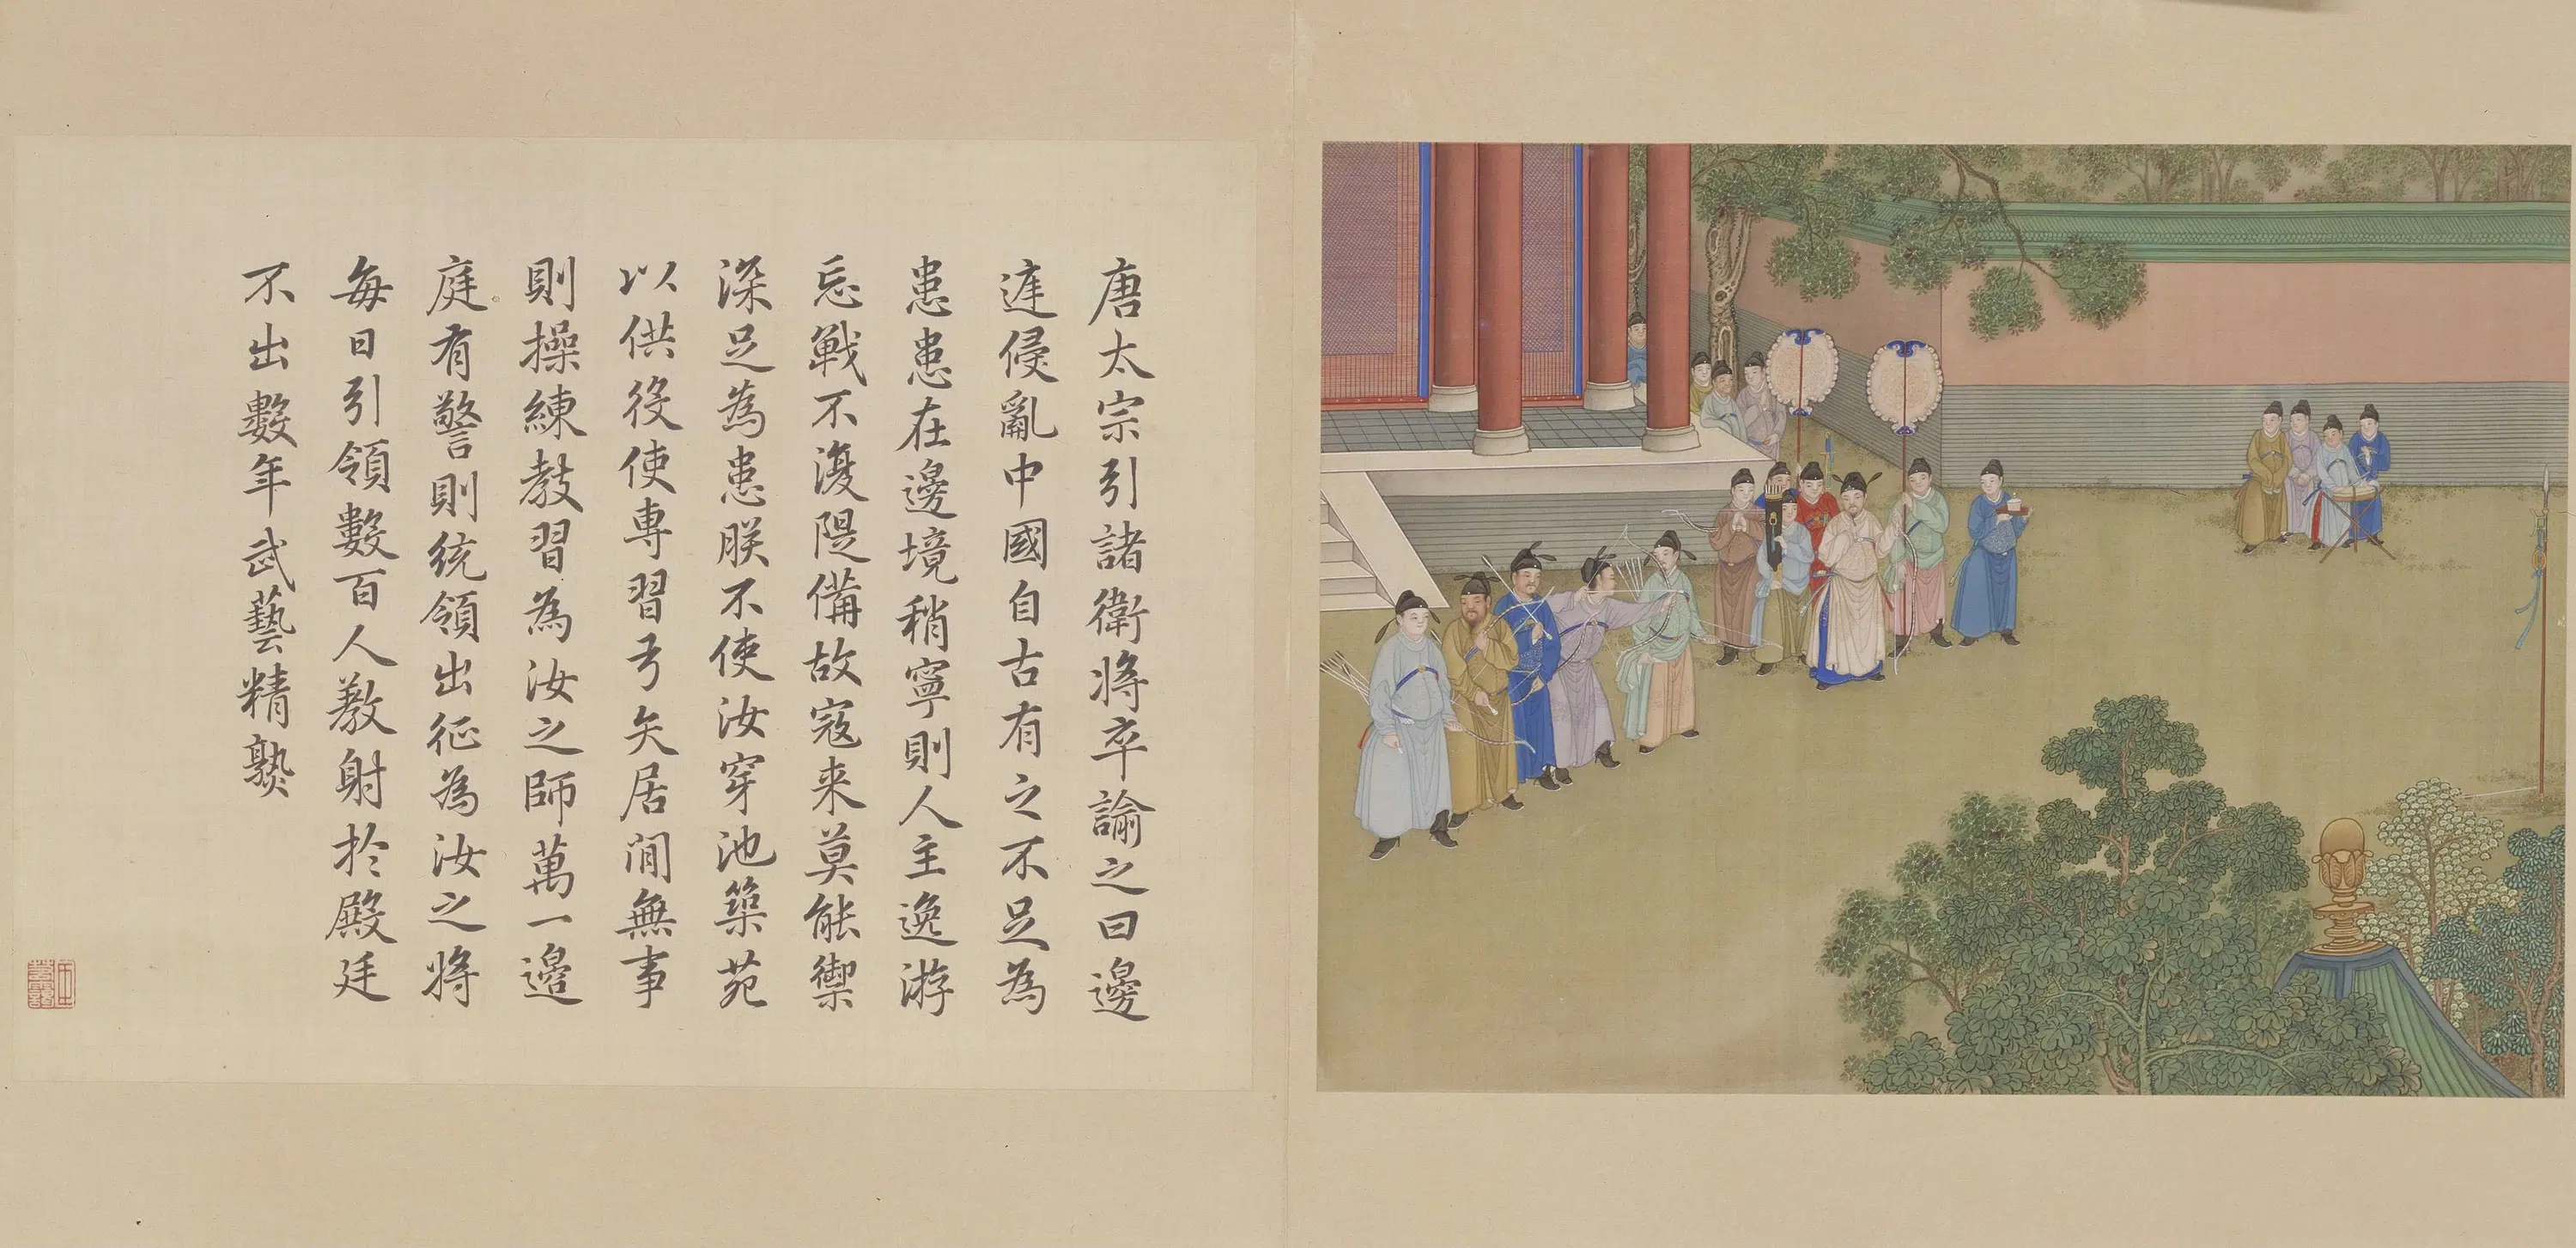 唐太宗引諸衛將卒諭之曰邊
遽侵亂中國自古有之不足為
患患在邊境稍寧則人主逸游
忘戰不復隄備故寇来莫能禦
深足為患朕不使汝穿池築苑
以供役使專習弓矢居閒無事
則操練教習為汝之師萬一邊
庭有警則統領出征為汝之將
每日引領數百人教射於殿廷
不出數年武藝精熟